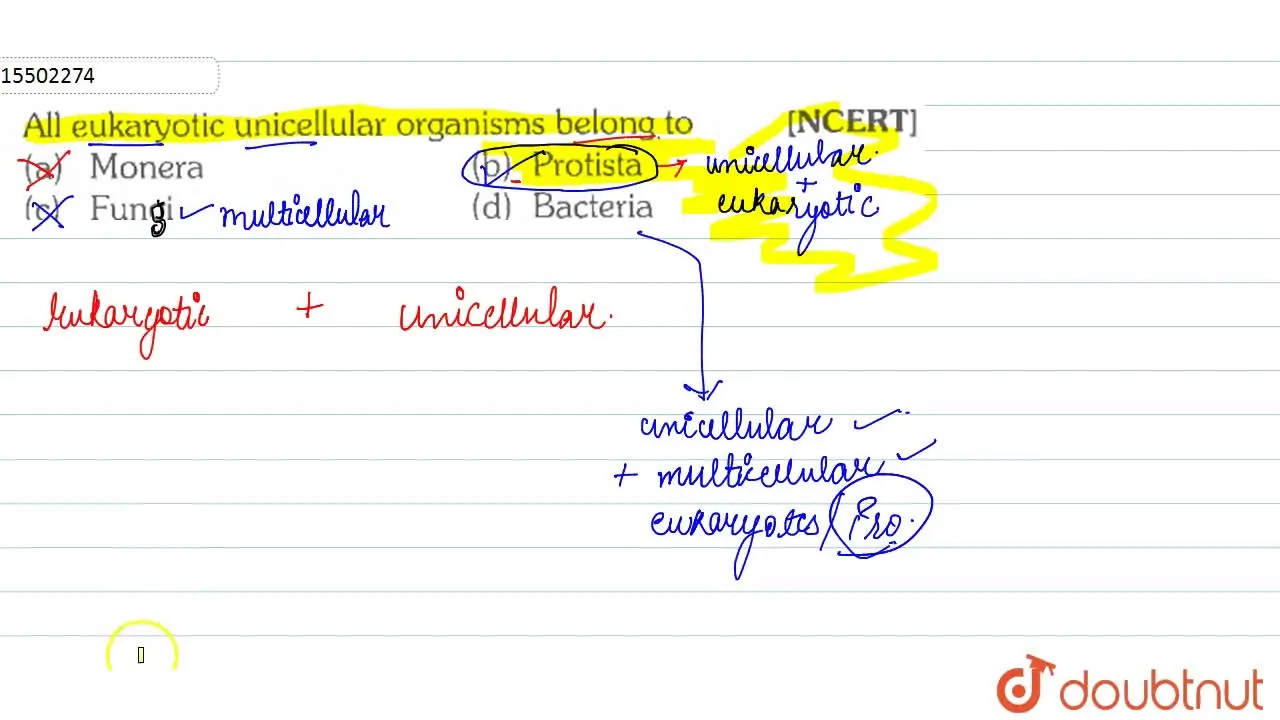 15502274
All eukaryotic unicellular organisms belong to [NCERT]
(a) Monera (b) Protista → unicellular.
+
(c) Fungi ✓ multicellular (d) Bacteria eukaryotic
eukaryotic + unicellular.
unicellular ✓
+ multicellular ✓
eukaryotes/Pro.
doubtnut